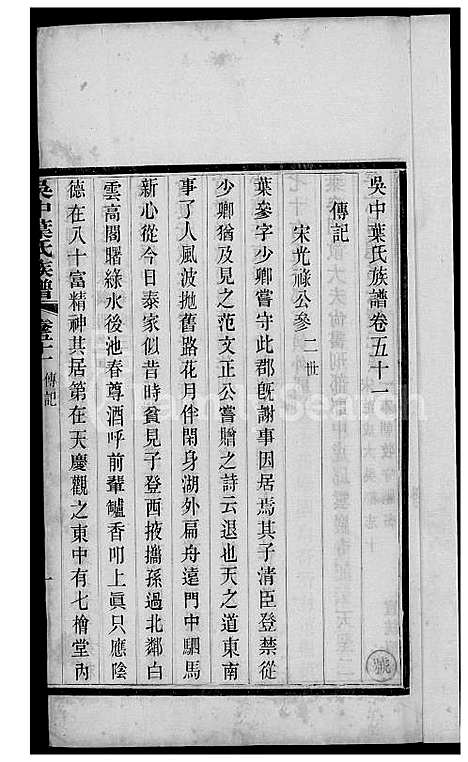 吳中葉氏族譜卷五十一
傳記
宋光祿公參二世
葉參字少卿嘗守此郡旣謝事因居焉其子清臣登禁從
少卿猶及見之范文正公嘗贈之詩云退也天之道東南
事了人風波拋舊路花月伴閑身湖外扁舟遠門中駟馬
新心從今日泰家似昔時貧見子登西掖攜孫過北鄰白
雲高閣曙綠水後池春尊酒呼前輩鱸香叩上眞只應陰
德在八十富精神其居第在天慶觀之東中有七檜堂內
吳中葉氏族譜 卷五十一 傳記 一
號